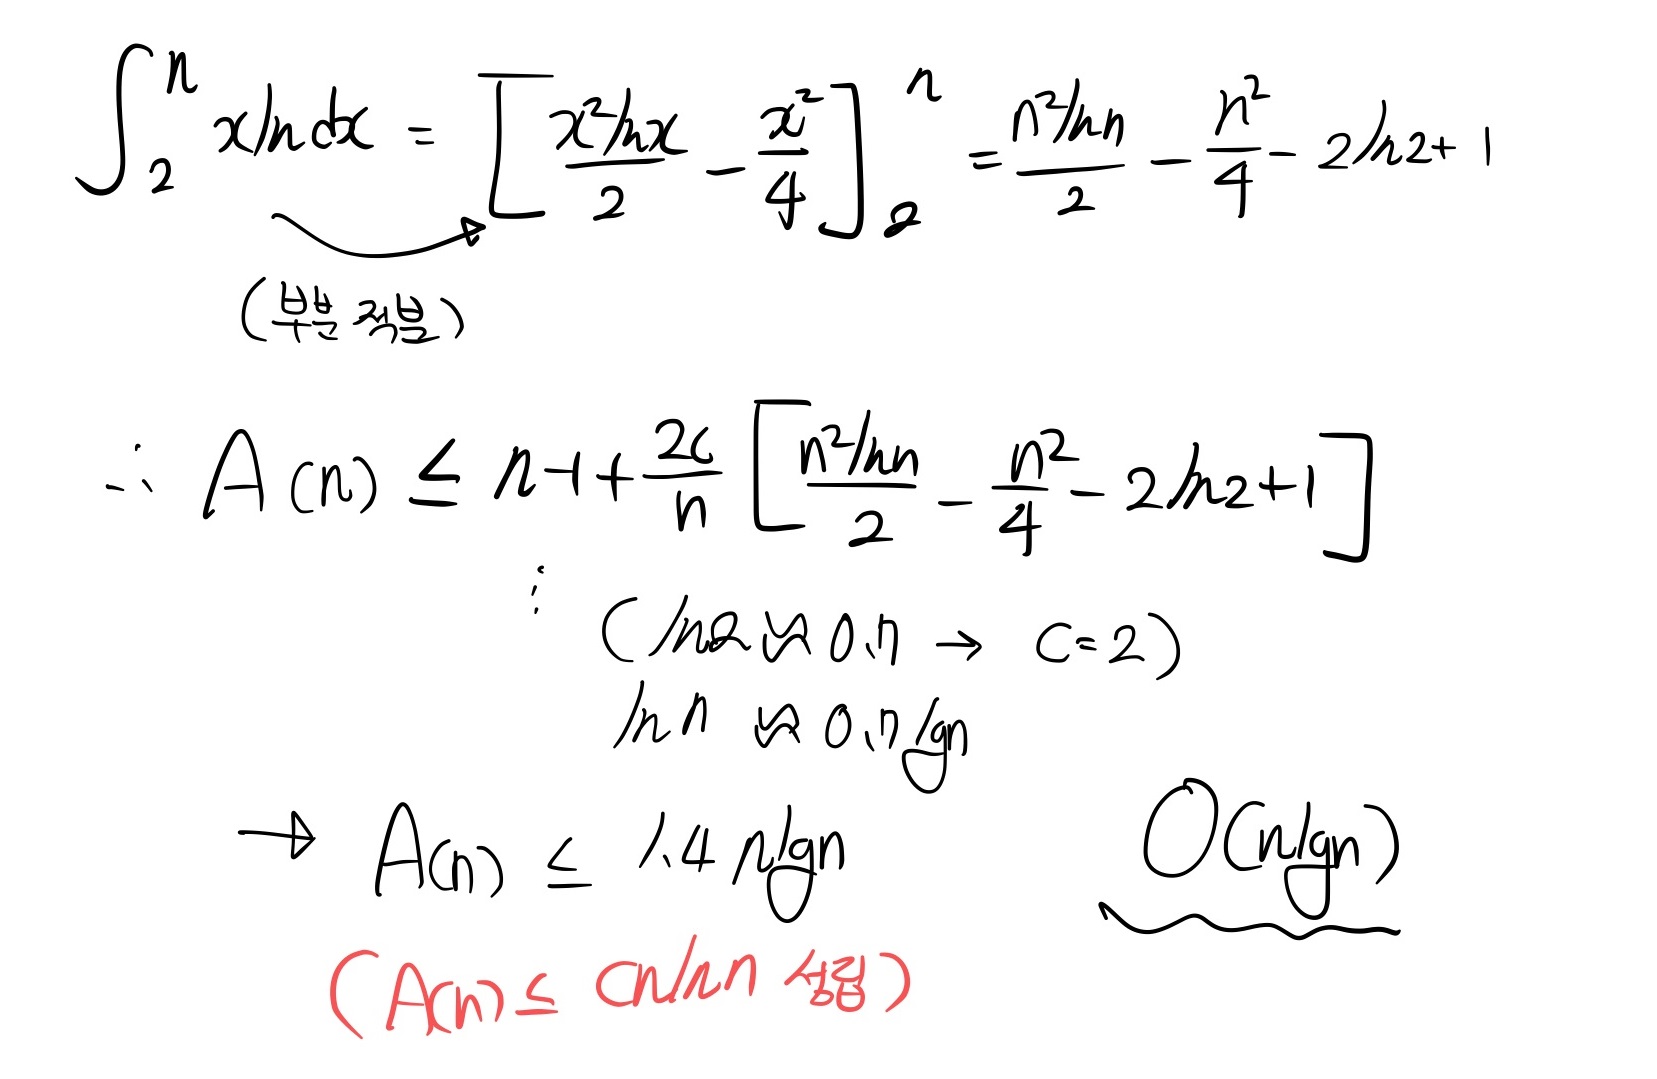 ∫₂ⁿ xlndx = [x²lnx/2 - x²/4]₂ⁿ = n²lnn/2 - n²/4 - 2ln2+1
(부분 적분)
∴ A(n) ≤ n-1+ 2c/n [n²lnn/2 - n²/4 - 2ln2+1]
⋮
(ln2 ≈ 0.7 → C=2)
ln n ≈ 0.7lgn
→ A(n) ≤ 1.4nlgn O(nlgn)
(A(n) ≤ cnlnn 성립)